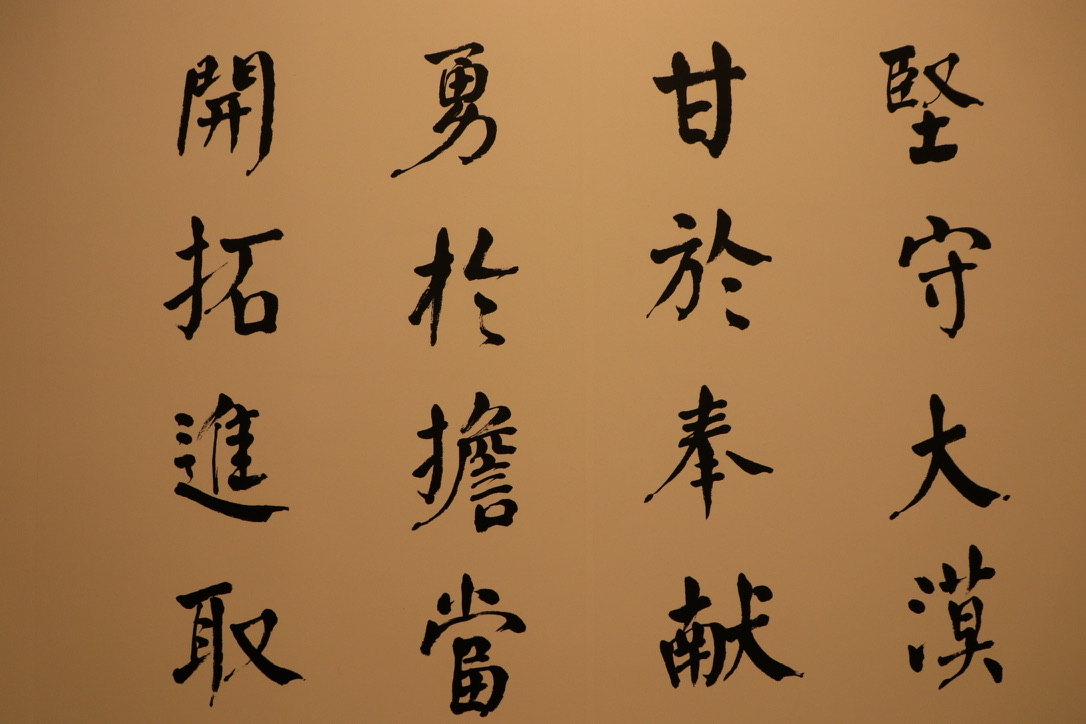 堅守大漠
甘於奉献
勇於擔當
開拓進取